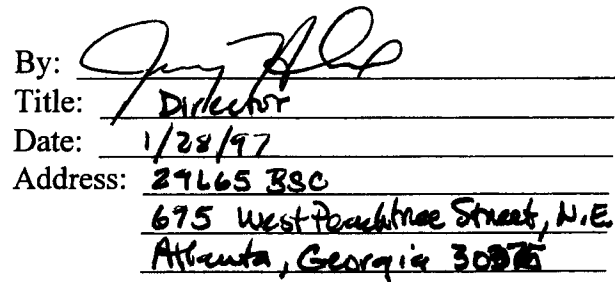 By:
Title: Director
Date: 1/28/97
Address: 29L65 BSC
675 West Peachtree Street, N.E.
Atlanta, Georgia 30375